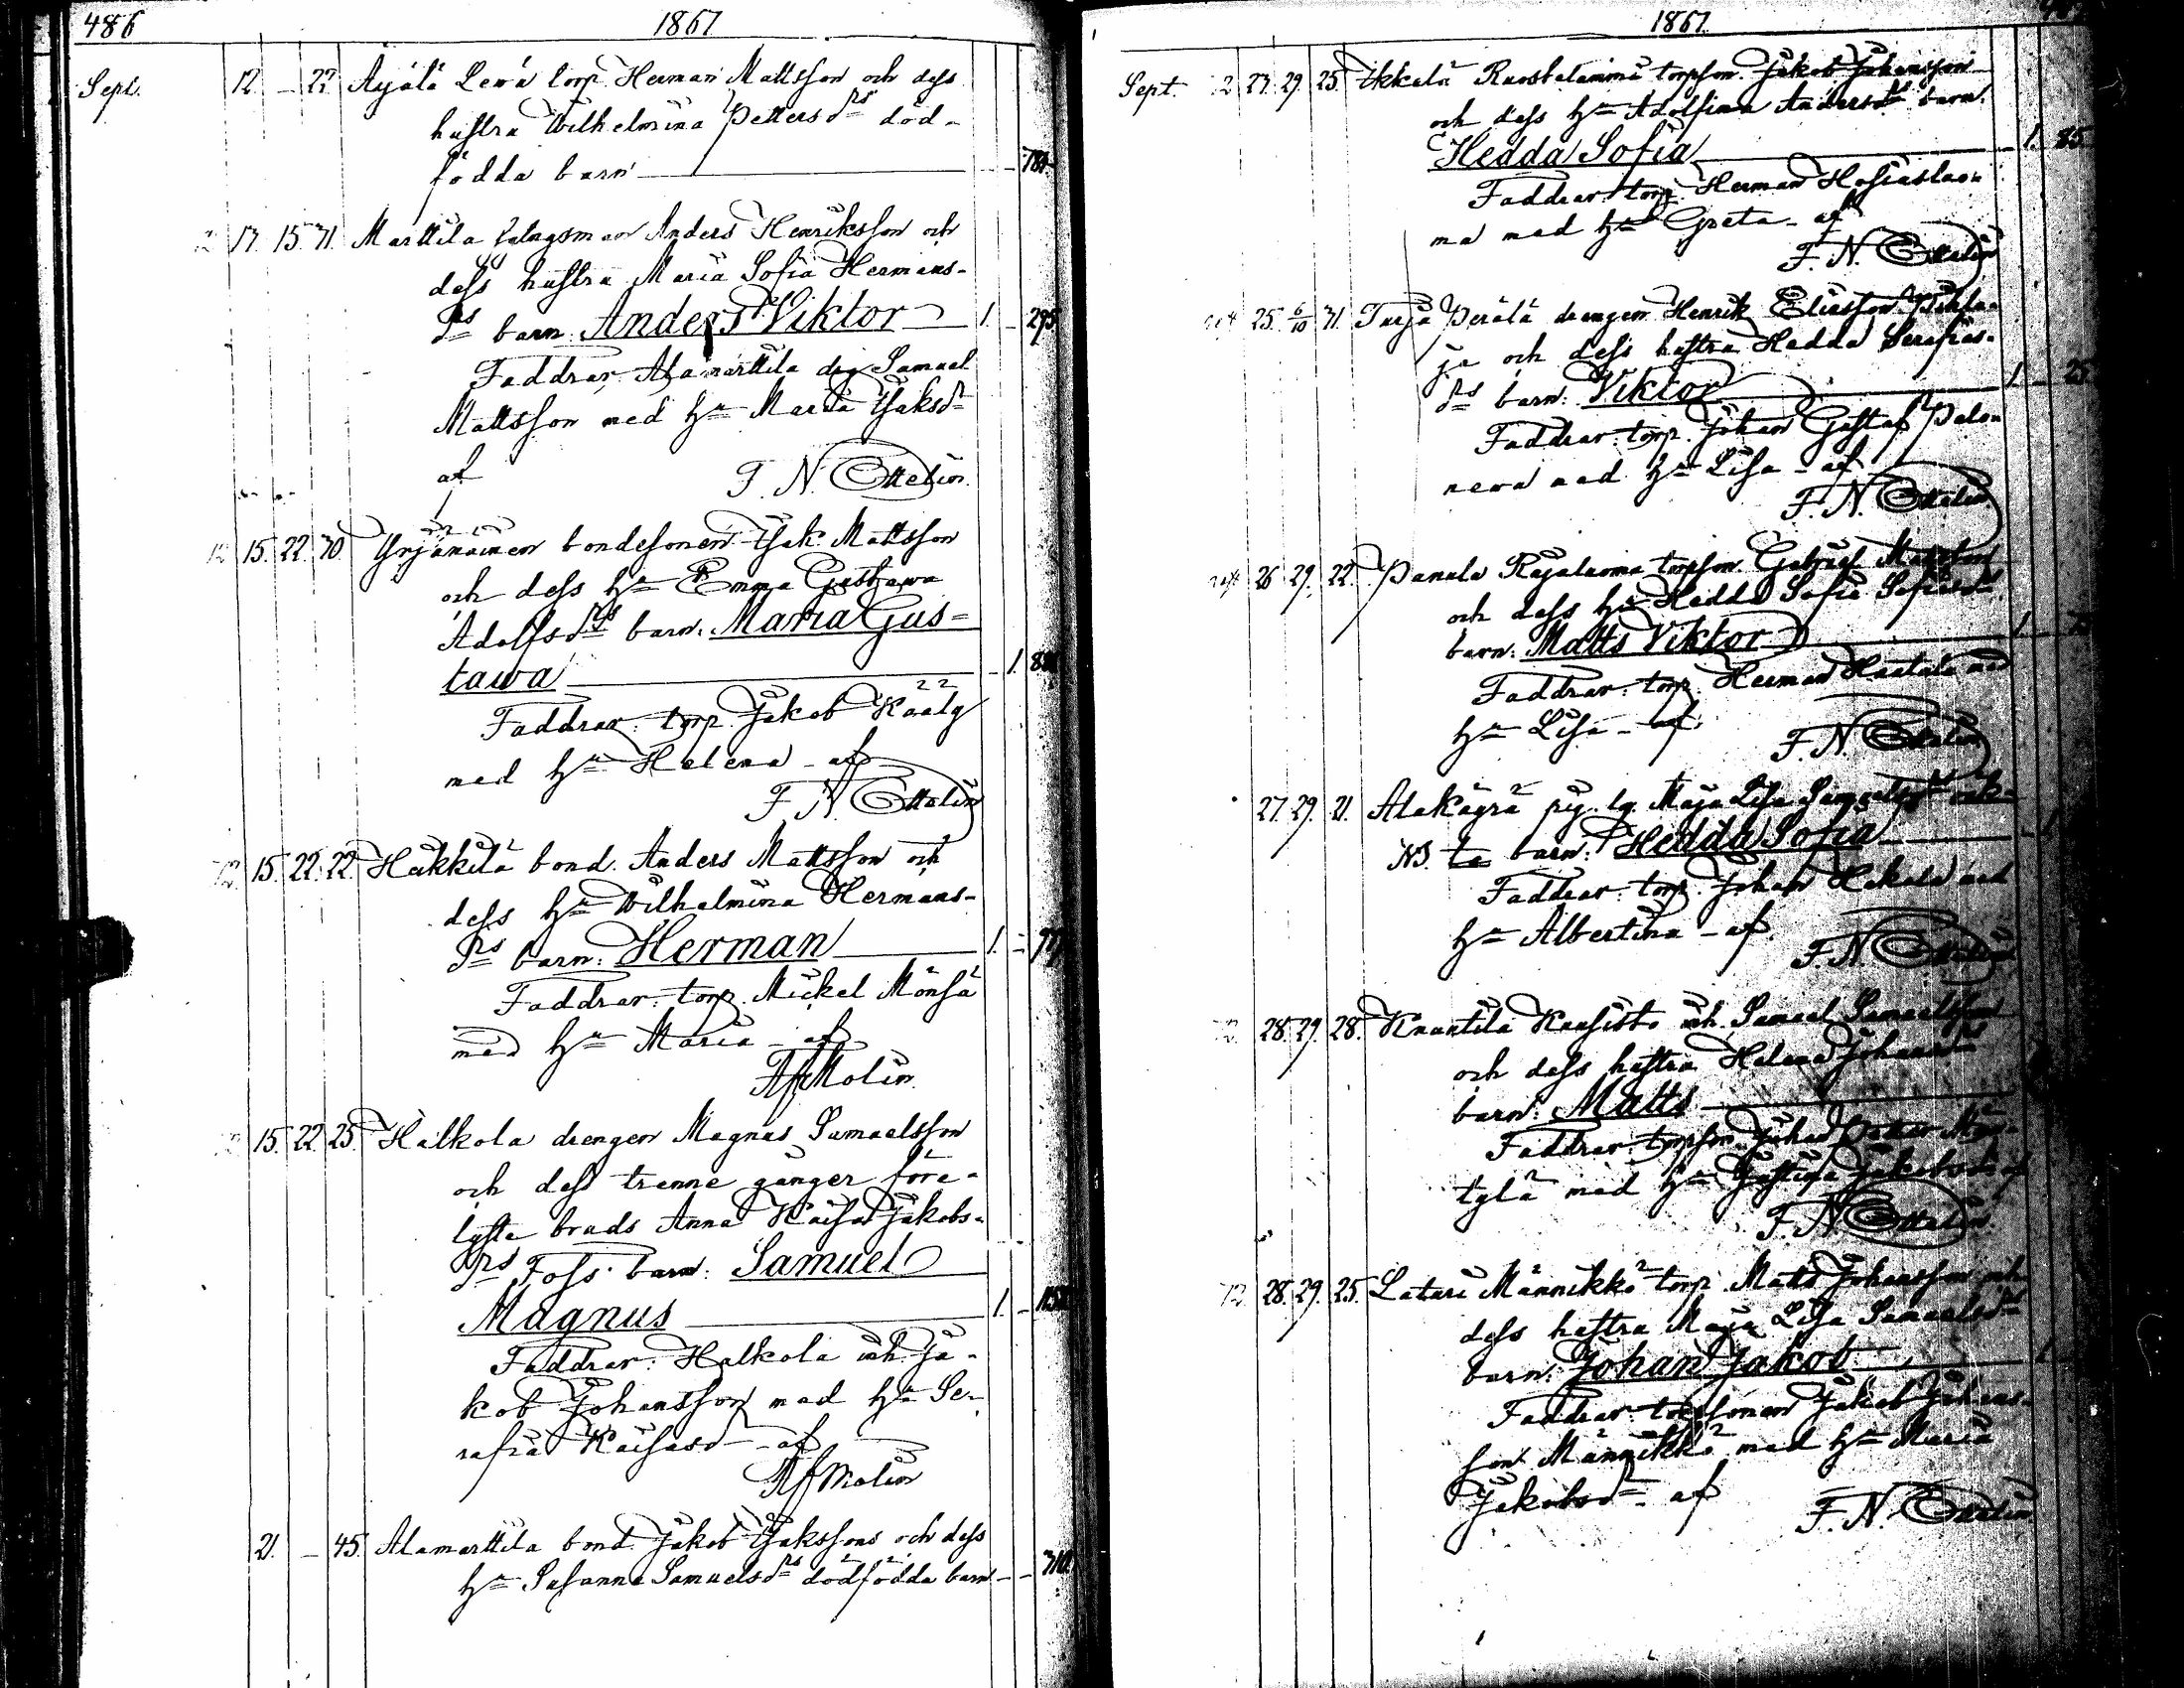 486 1867
Sept. 12. – 22 Äijälä Lewä torp. Herman Mattsson och dess
hustru Wilhelmina Pettersdrs död-
födda barn
17. 15. 71. Marttila bolagsman Anders Henriksson och
dess hustru Maria Sofia Hermans-
drs barn Anders Viktor 1. – 295
Faddrar: Alamarttila drg Samuel
Mattsson med hu Maria Isaksdr
af F. N. Ottelin.
15. 22. 70. Yrjänäinen bondesonen Isak Mattsson
och dess hu Emma Gustawa
Adolfsdrs barn: Maria Gus=
tawa – 1.
Faddrar: torp. Jakob Kääly
med hu Helena – af
F. N. Ottelin
12. 15. 22. 22. Hakkila bond. Anders Mattsson och
dess hu Wilhelmina Hermans-
drs barn: Herman 1. –
Faddrar: torp. Mickel Mönsä
med hu Maria – af
Molin.
15. 22. 25. Halkola drengen Magnus Samuelsson
och dess trenne gånger före-
lyste bruds Anna Kaisa Jakobs-
drs Foss barn: Samuel
Magnus 1. –
Faddrar: Halkola inh. Ja-
kob Johansson med hu Se-
rafia Kaisasd – af
Molin
21. – 45. Alamarttila bond. Jakob Isakssons och dess
hu Susanna Samuelsdrs dödfödda barn – – 310.
1867.
Sept. 27. 29. 25. Ikkala torpson. Jakob Johansson
och dess hu Adolfina Andersdrs barn:
Hedda Sofia 1. 85
Faddrar: torp. Herman
ma med hu Greta – af
F. N. Ottelin
25. 6/10 71. Turja Perälä drengen Henrik Eliasson
ja och dess hustru Hedda Serafias-
drs barn: Viktor 1. – 25.
Faddrar: torp. Johan Gustaf Palo-
newa med hu Lisa – af
F. N. Ottelin
26. 29. 22. Panula Rajaluoma torpson. Gabriel Mattsson
och dess hu Hedda Sofia
barn: Matts Viktor 1.
Faddrar: torp. Herman Hautala med
hu Lisa – af
F. N. Ottelin
27. 29. 21. Alakäyrä pig. lg. Maja Lisa Samuelsdr oäk-
N3. ta barn: Hedda Sofia – 1
Faddrar: torp. Johan Hakala med
hu Albertina – af
F. N. Ottelin
28. 29. 28. Knuutila Kuusisto inh. Samuel Samuelsson
och dess hustru Helena
barn: Matts
Faddrar: torpson. Johan
tylä med hu Justina Jakobsdr af
F. N. Ottelin.
12. 28. 29. 25. Laturi Männikkö torp. Matts Johansson och
dess hustru Maja Lisa Samuelsdrs
barn: Johan Jakob 1.
Faddrar: torpsonen Jakob Johans-
son Männikkö med hu Maria
Jakobsdr – af
F. N. Ottelin